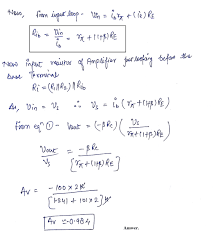 Now, from input loop - Vin = ib rπ + (ie) RE
Rib = Vin/ib = rπ + (1+β) RE
Now input resistor of Amplifier just looking before the
base Terminal
Ri = (R1||R2) || Rib
As, Vin = Vs ∴ Vs = ib (rπ + (1+β) RE)
from eqn ① - Vout = (-βRc) (Vs / rπ + (1+β) RE)
Vout/Vs = -βRc / [rπ + (1+β) RE]
Av = -100 × 2K / [1.34 + 101 × 2] K
Av = -0.984
Answer.